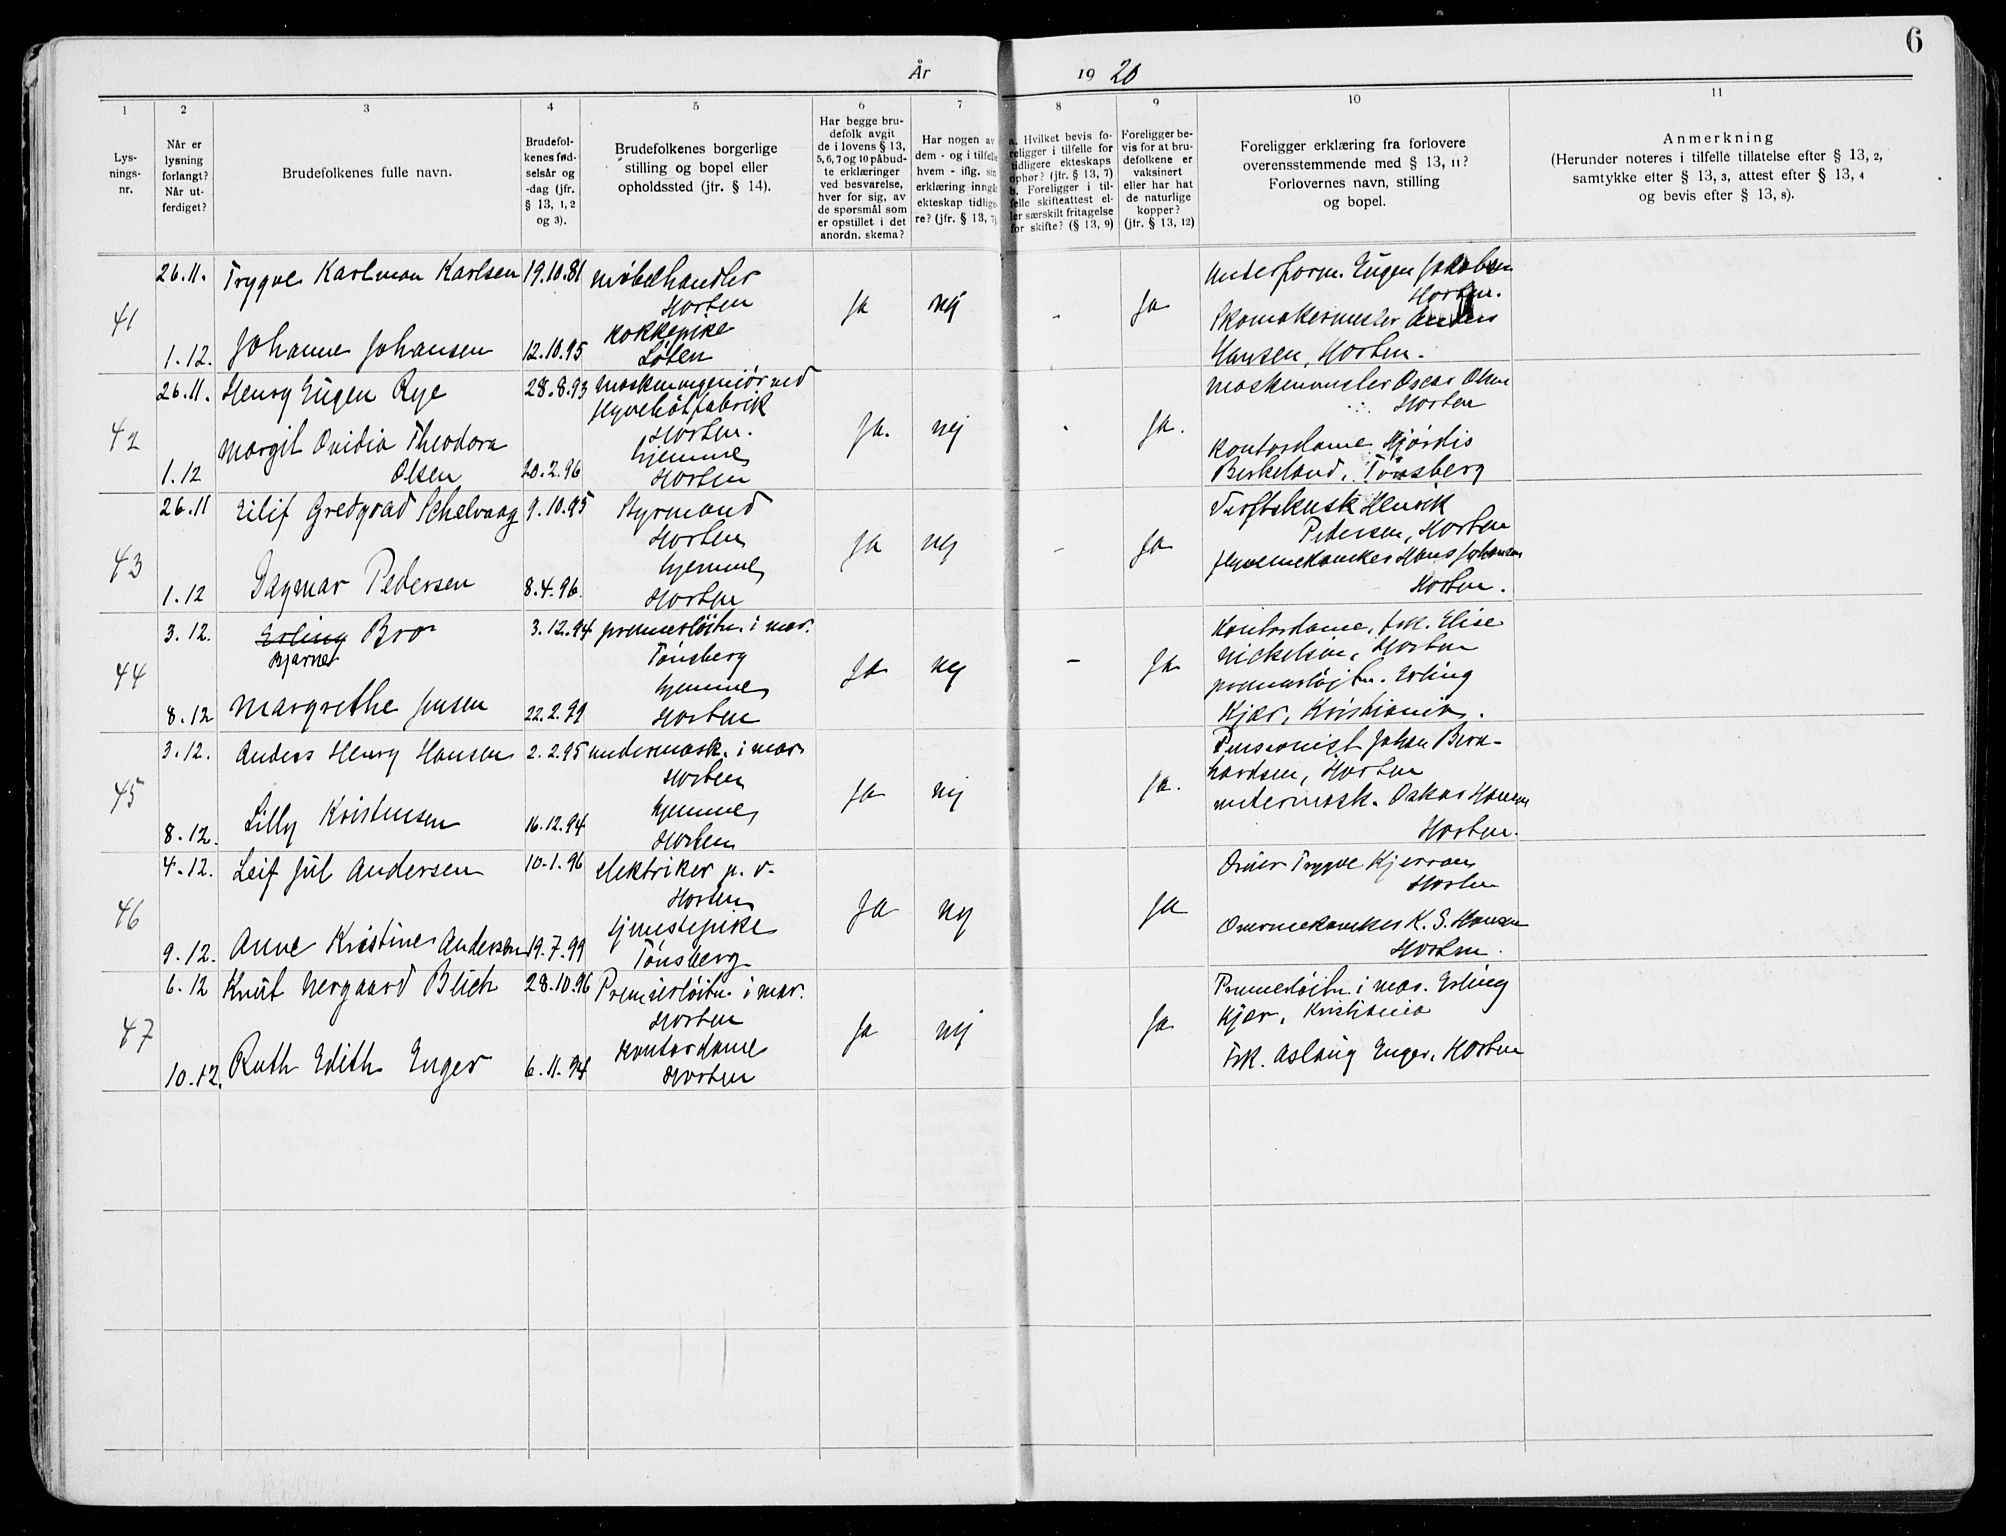 6
År 1920
1 2 3 4 5 6 7 8 9 10 11
Lys-
nings-
nr.
Når er
lysning
forlangt?
Når ut-
ferdiget?
Brudefolkenes fulle navn.
Brudefol-
kenes fød-
selsår og
-dag (jfr.
§ 13, 1, 2
og 3).
Brudefolkenes borgerlige
stilling og bopel eller
opholdssted (jfr. § 14).
Har begge bru-
defolk avgit
de i lovens § 13,
5, 6, 7 og 10 påbud-
te erklæringer
ved besvarelse,
hver for sig, av
de spørsmål som
er opstillet i det
anordn. skema?
Har nogen av
dem - og i tilfelle
hvem - iflg. sin
erklæring inngå
ekteskap tidlige-
re? (jfr. § 13, 7)
a. Hvilket bevis fo-
religger i tilfelle for
tidligere ekteskaps
ophør? (jfr. § 13, 7)
b. Foreligger i til-
felle skifteattest el-
ler særskilt fritagelse
for skifte? (§ 13, 9)
Foreligger be-
vis for at bru-
defolkene er
vaksinert
eller har hat
de naturlige
kopper?
(jfr. § 13, 12)
Foreligger erklæring fra forlovere
overensstemmende med § 13, 11?
Forlovernes navn, stilling
og bopel.
Anmerkning
(Herunder noteres i tilfelle tillatelse efter § 13, 2,
samtykke efter § 13, 3, attest efter § 13, 4
og bevis efter § 13, 8).
41
26.11.
1.12.
Trygve Karlman Karlsen
Johanne Johansen
19.10.81
12.10.95
møbelhandler
Horten
kokkepike
Løten
Ja
nej
-
Ja
Underform. Eugen Jakobsen
Horten.
Skomakermester Anders
Hansen, Horten.
42
26.11.
1.12
Henry Eugen Rye
Margit Ovidia Theodora
Olsen
28.8.93
20.2.96
Maskiningeniør ved
flyvebåtfabrik
Horten.
hjemme,
Horten
Ja.
nej
-
Ja.
Maskinmester Oscar Olsen
Horten
Kontordame Hjørdis
Birkeland, Tönsberg
43
26.11
1.12
Eilif Gredqvad Schelvaag
Dagmar Pedersen
9.10.95
8.4.96.
Styrmand
Horten
hjemme,
Horten
Ja
nej
-
Ja
Henrik
Pedersen, Horten
flyvemekaniker Hans Johansen
Horten.
44
3.12.
8.12
Erling Bro
Bjarne
Margrethe Jensen
3.12.94
22.2.99
premierløitn. i mar.
Tönsberg
hjemme,
Horten
Ja
nej
-
Ja
Kontordame, frk. Elise
Mickelsen, Horten
premierløjtn. Erling
Kjær, Kristiania.
45
3.12.
8.12.
Anders Henry Hansen
Lilly Kristensen
2.2.95
16.12.94
undermask. i mar.
Horten
hjemme,
Horten
Ja
nej
Ja.
Pensionist Johan Bern-
hardsen, Horten
undermask. Oskar Hansen
Horten.
46
4.12.
9.12.
Leif Jul Andersen
Anne Kristine Andersen
10.1.96
19.7.99
elektriker p. v.
Horten
tjenestepike
Tönsberg
Ja
nej
Ja
Trygve
Horten
Overmekaniker K. S. Hansen
Horten.
47
6.12
10.12.
Knut Nergaard Blich
Ruth Edith Enger
28.10.96
6.11.94
Premierløitn. i mar.
Horten
Kontordame
Horten
Ja
nej
Ja
Premierløitn. i mar. Erling
Kjær, Kristiania
Frk. Aslaug Enger, Horten